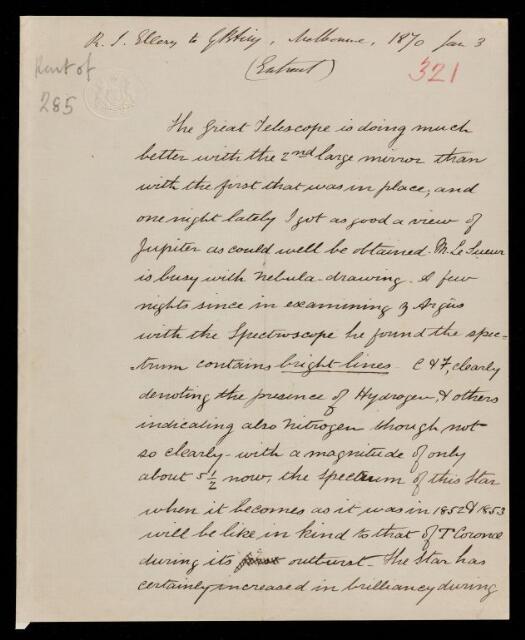 R. J. Ellery to G B Airy, Melbourne, 1870 Jan 3
(Extract)
321
Part of
285
The Great Telescope is doing much
better with the 2nd large mirror than
with the first that was in place; and
one night lately I got as good a view of
Jupiter as could well be obtained. M. Le Sueur
is busy with Nebula-drawing. A few
nights since in examining η Argûs
with the Spectroscope he found the spec-
-trum contains bright lines. C & F, clearly
denoting the presence of Hydrogen, & others
indicating also Nitrogen though not
so clearly - with a magnitude of only
about 5 1/2 now, the spectrum of this Star
when it becomes as it was in 1852 & 1853
will be like in kind to that of T Coronæ
during its outburst - The Star has
certainly increased in brilliancy during